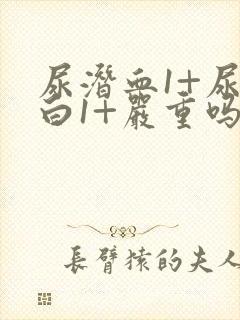 尿潛血1+尿
白1+嚴重吗
長臂猿的夫人